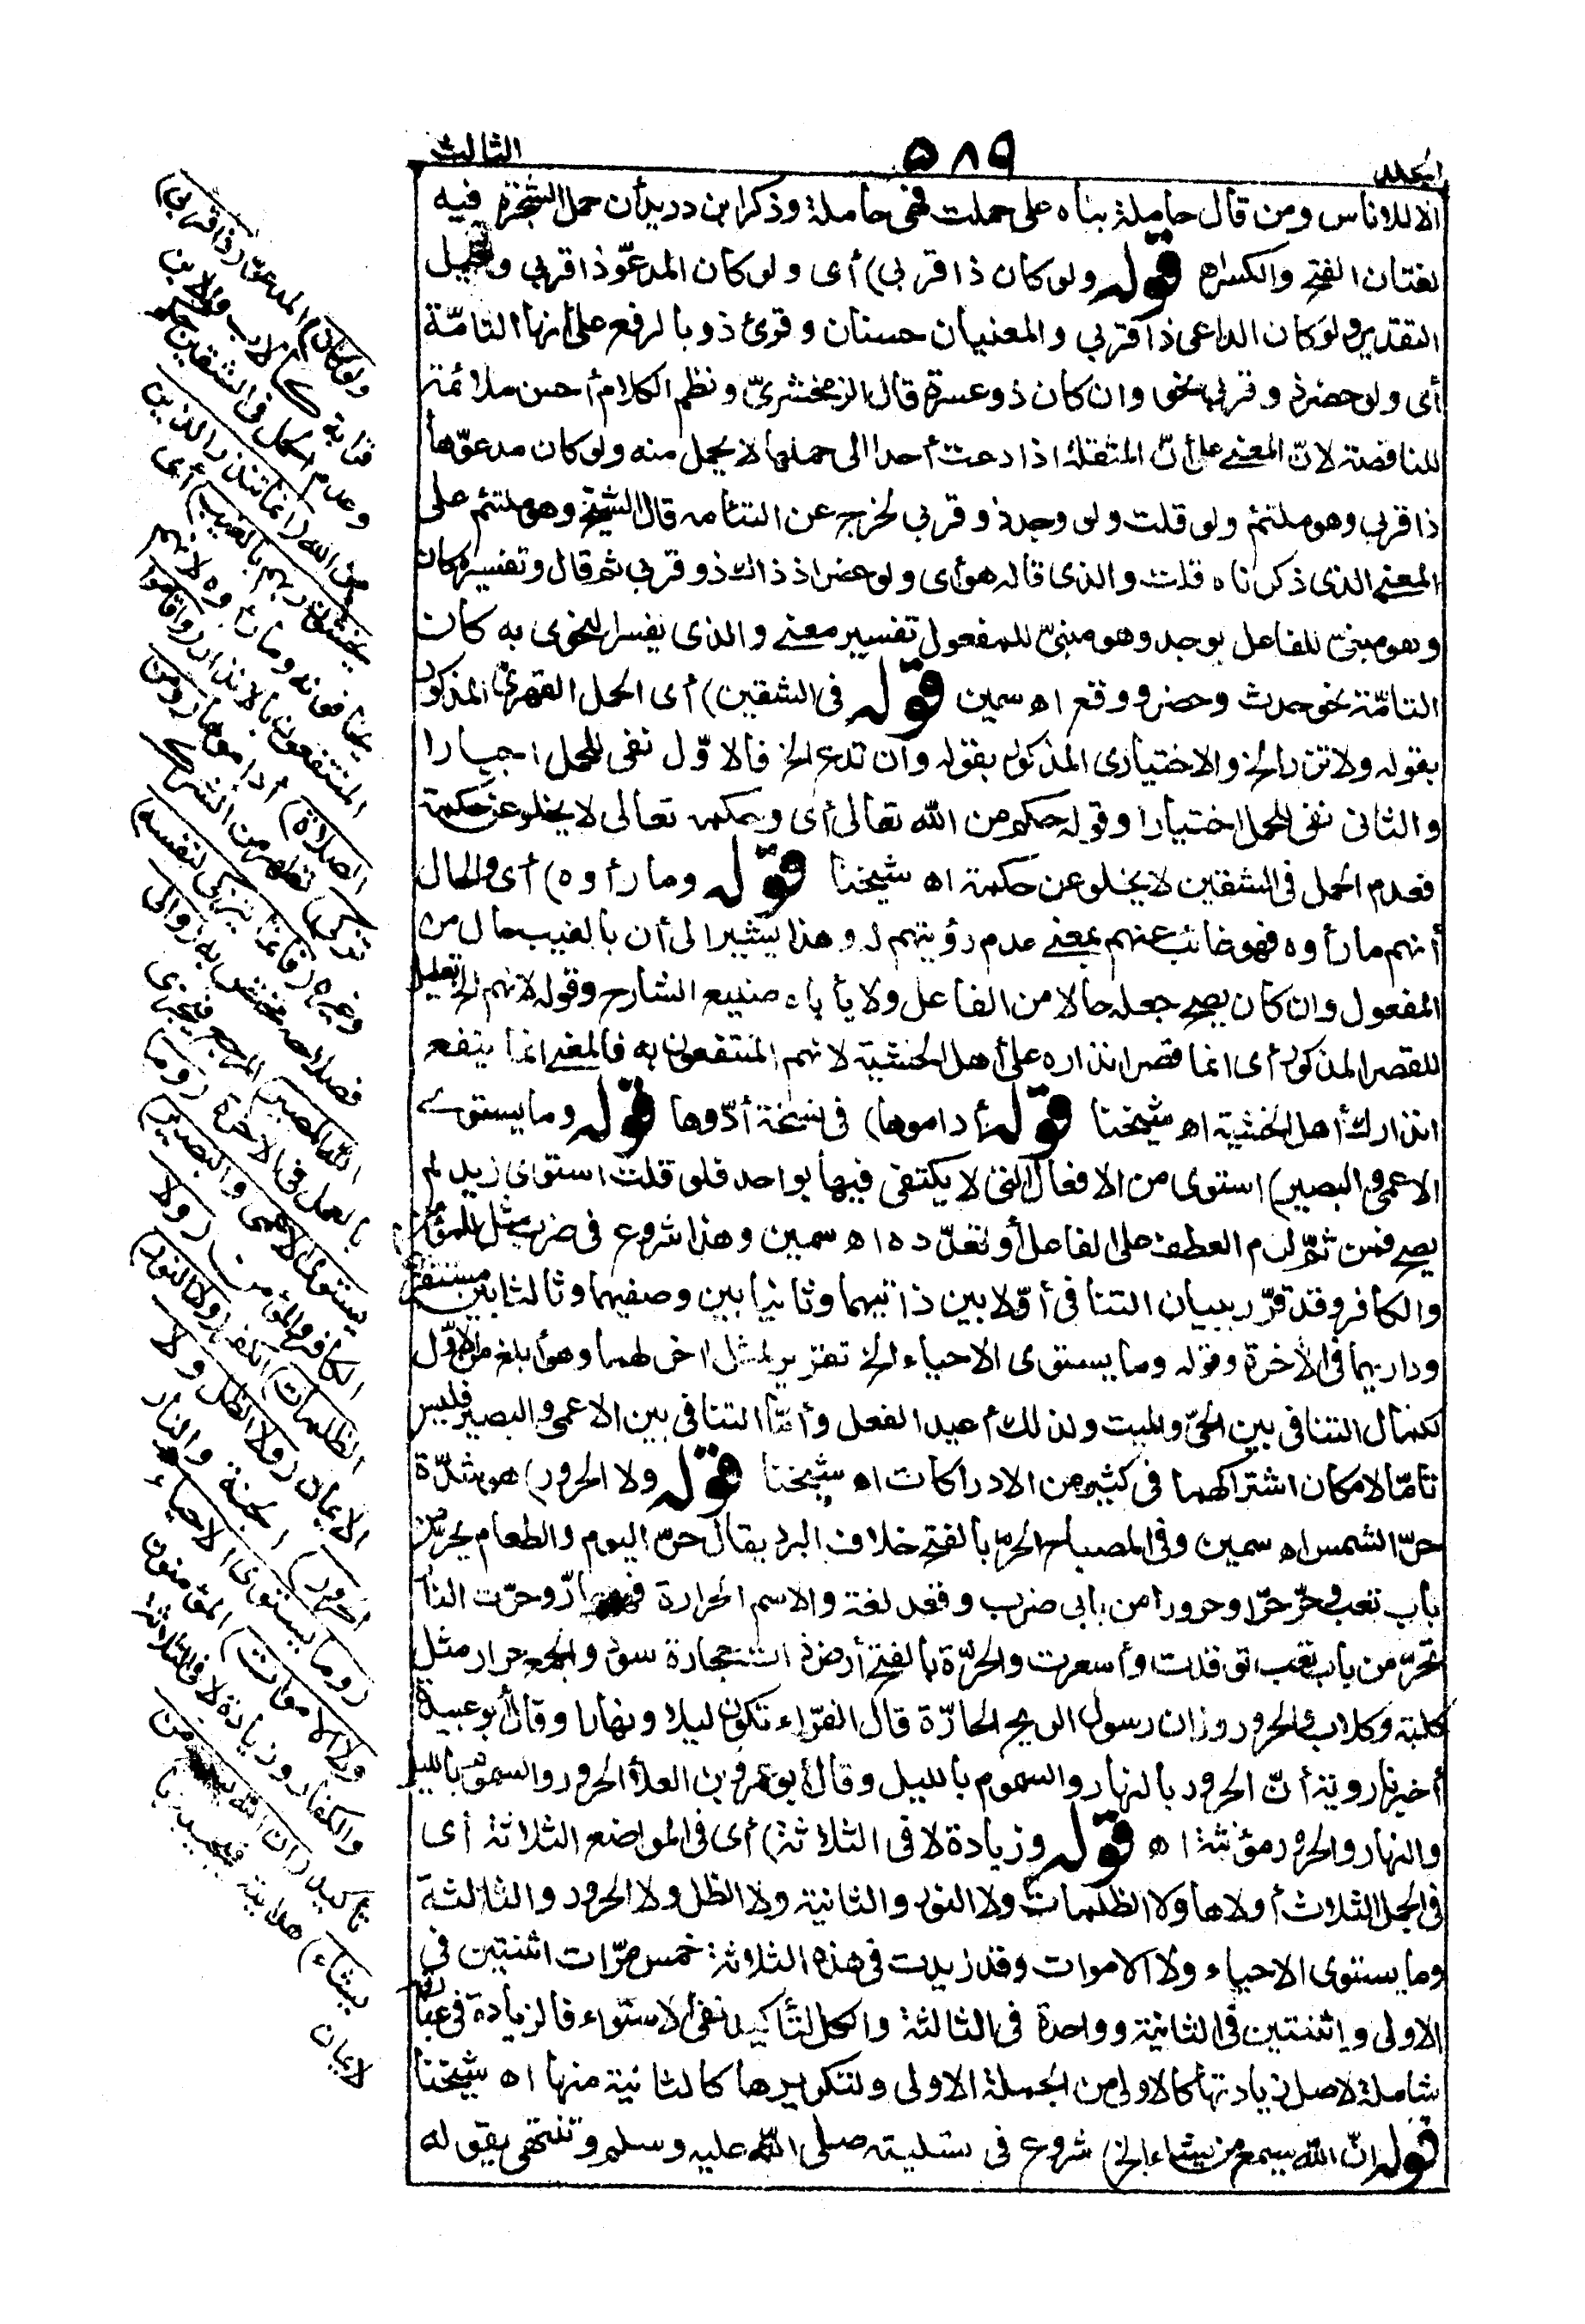 المجلد
٥٨٩
الثالث
الا للاناس ومن قال حاملة بناه على حملت فهى حاملة وذكر ابن دريد أن حمل الشجرة فيه
لغتان الفتح والكسر اه قوله ولو كان ذا قربى) أى ولو كان المدعوّ ذا قربى وقيل
التقدير ولو كان الداعى ذا قربى والمعنيان حسنان وقرئ ذو بالرفع على أنها التامّة
أى ولو حضر ذو قربى نحو وان كان ذو عسرة قال الزمخشرىّ ونظم الكلام أحسن ملائمة
للناقصة لانّ المعنى على أنّ المثقلة اذا دعت أحدا الى حملها لا يحمل منه ولو كان مدعوّها
ذا قربى وهو ملتئم ولو قلت ولو وجد ذو قربى لخرج عن التئامه قال الشيخ وهو ملتئم على
المعنى الذى ذكرناه قلت والذى قاله هو أى ولو حضر اذ ذاك ذو قربى ثم قال وتفسيره كان
وهو مبنىّ للفاعل بوجد وهو مبنىّ للمفعول تفسير معنى والذى يفسر النحوى به كان
التامّة نحو حدث وحضر ووقع اه سمين قوله فى الشقين) أى الحمل القهرى المذكور
بقوله ولا تزر الخ والاختيارى المذكور بقوله وان تدع الخ فالاوّل نفى للحمل اجبارا
والثانى نفى للحمل اختيارا وقوله حكم من الله تعالى أى وحكمه تعالى لا يخلو عن حكمة
فعدم الحمل فى الشقين لا يخلو عن حكمة اه شيخنا قوله وما رأوه) أى والحال
أنهم ما رأوه فهو غائب عنهم بمعنى عدم رؤيتهم له وهذا يشير الى أن بالغيب حال من
المفعول وان كان يصح جعله حالا من الفاعل ولا يأباه صنيع الشارح وقوله لانهم الخ تعليل
للقصر المذكور أى انما قصر انذاره على أهل الخشية لانهم المنتفعون به فالمعنى انما ينفع
انذارك أهل الخشية اه شيخنا قوله أداموها) فى نسخة أدّوها قوله وما يستوى
الاعمى والبصير) استوى من الافعال التى لا يكتفى فيها بواحد فلو قلت استوى زيد لم
يصح فمن ثمّ لزم العطف على الفاعل أو تعدّده اه سمين وهذا شروع فى ضرب مثل للمؤمن
والكافر وقد قرّر ببيان التنافى أوّلا بين ذاتيهما وثانيا بين وصفيهما وثالثا بين مستقرّيهما
وداريهما فى الآخرة وقوله وما يستوى الاحياء الخ تقرير لمثل اخر لهما وهو أبلغ من الاوّل
لكمال التنافى بين الحىّ والميت ولذلك أعيد الفعل وأمّا التنافى بين الاعمى والبصير فليس
تامّا لامكان اشتراكهما فى كثير من الادراكات اه شيخنا قوله ولا الحرور) هو شدّة
حرّ الشمس اه سمين وفى المصباح الحرّ بالفتح خلاف البرد يقال حرّ اليوم والطعام يحرّ من
باب تعب وحرّ حرّا وحرورا من بابى ضرب وقعد لغة والاسم الحرارة فهو حارّ وحرّت النار
تحرّ من باب تعب توقدت وأسعرت والحرّة بالفتح أرض ذات حجارة سود والجمع حرار مثل
كلبة وكلاب والحرور وزان رسول الريح الحارّة قال الفرّاء تكون ليلا ونهارا وقال أبو عبيدة
أخبرنا روبة أنّ الحرور بالنهار والسموم بالليل وقال أبو عمرو بن العلاء الحرور والسموم بالليل
والنهار والحرور مؤنثة اه قوله وزيادة لا فى الثلاثة) أى فى المواضع الثلاثة أى
فى الجمل الثلاث أولاها ولا الظلمات ولا النور والثانية ولا الظل ولا الحرور والثالثة
وما يستوى الاحياء ولا الاموات وقد زيدت فى هذه الثلاثة خمس مرّات اثنتين فى
الاولى واثنتين فى الثانية وواحدة فى الثالثة والكل لتأكيد نفى الاستواء فالزيادة فى عبارته
شاملة لاصل زيادتها كالاولى من الجملة الاولى ولتكريرها كالثانية منها اه شيخنا
قوله انّ الله يسمع من يشاء الخ) شروع فى تسليته صلى الله عليه وسلم وتنتهى بقوله
ولو كان) المدعوّ (ذا قربى)
قرابة كالاب والابن
وعدم الحمل فى الشقين حكم
من الله (انما تنذر الذين
يخشون ربهم بالغيب) أى
يخافونه وما رأوه لانهم
المنتفعون بالانذار (وأقاموا
الصلاة) أداموها (ومن
تزكى) تطهر من الشرك
وغيره (فانما يتزكى لنفسه)
فصلاحه مختص به (والى
الله المصير) المرجع فيجزى
بالعمل فى الآخرة (وما
يستوى الاعمى والبصير)
الكافر والمؤمن (ولا
الظلمات) الكفر (ولا النور)
الايمان (ولا الظل ولا
الحرور) الجنة والنار
(وما يستوى الاحياء
ولا الاموات) المؤمنون
والكفار وزيادة لا فى الثلاثة
تأكيد (ان الله يسمع من
يشاء) هدايته فيجيبه با
لايمان